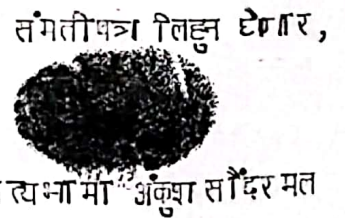 संमतीपत्र लिहुन देणार,
त्यभामा अंकुश सौंदरमल